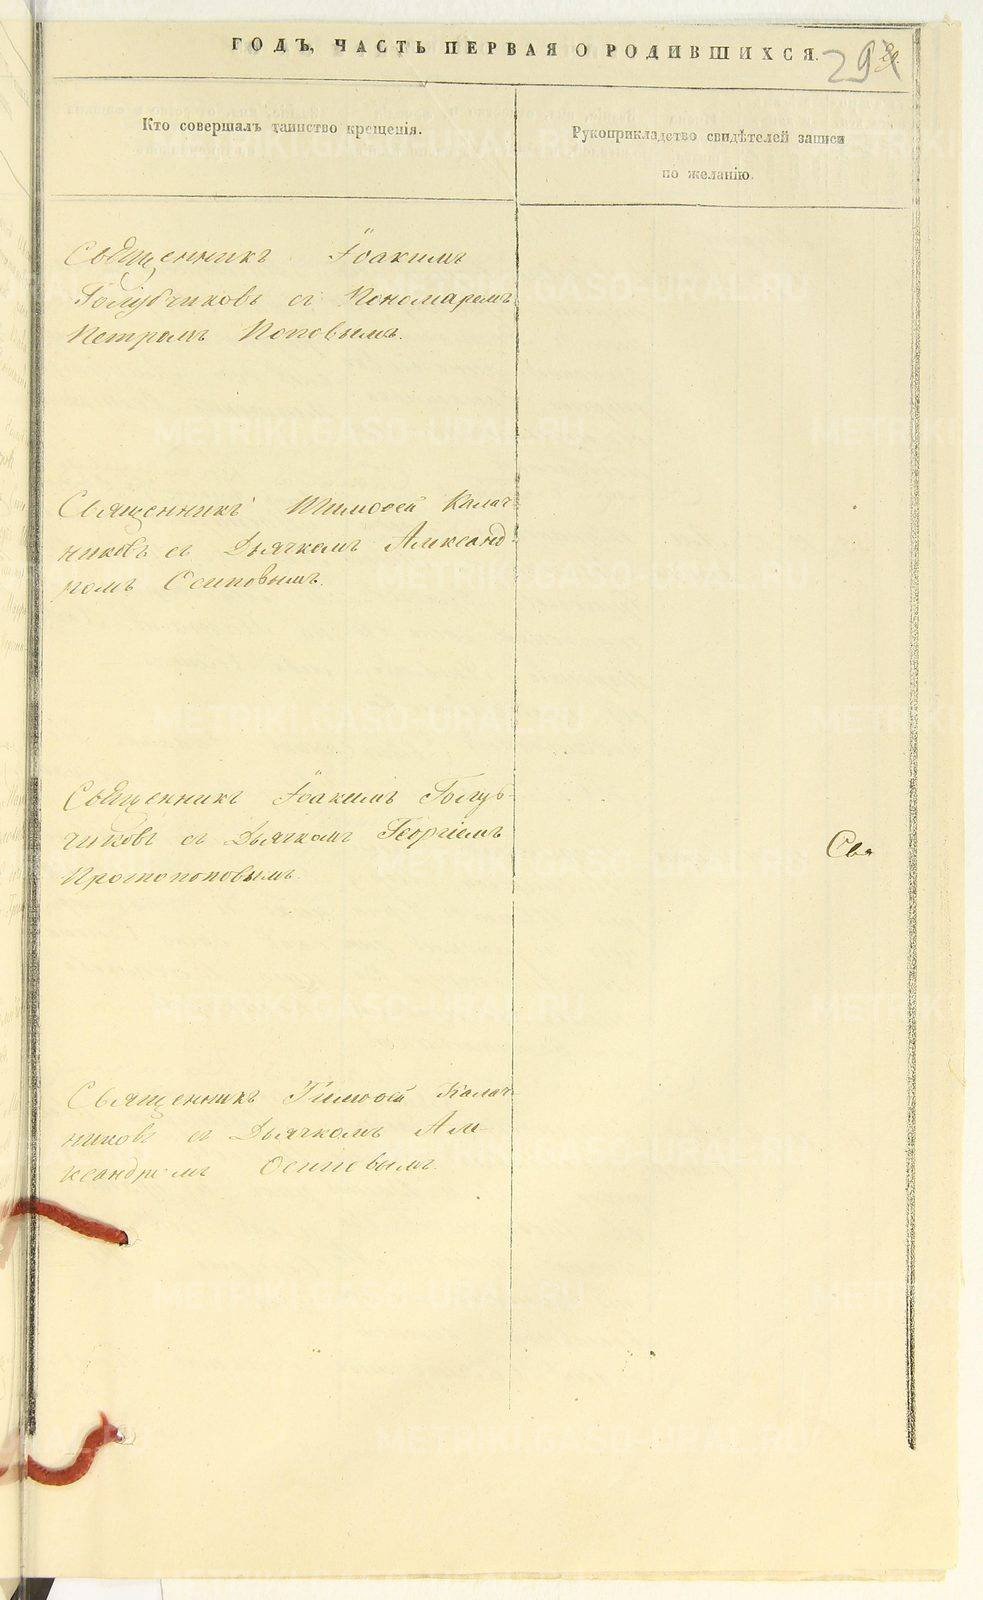 ГОДЪ, ЧАСТЬ ПЕРВАЯ О РОДИВШИХСЯ.
29
Кто совершалъ таинство крещенія.
Рукоприкладство свидѣтелей записи
по желанію.
Священникъ Іоакимъ
Голубчиковъ съ Пономаремъ
Петромъ Поповымъ.
Священникъ Тимоѳей Калач-
никовъ съ Дьячкомъ Александ-
ромъ Осиповымъ.
Священникъ Іоакимъ Голуб-
чиковъ съ Дьячкомъ Георгіемъ
Протопоповымъ.
Свя
Священникъ Тимоѳей Калач-
никовъ съ Дьячкомъ Але-
ксандромъ Осиповымъ.
METRIKI.GASO-URAL.RU